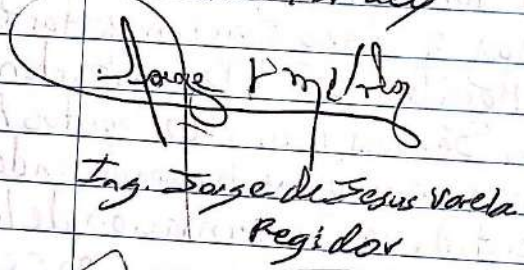 Jorge
Ing. Jorge de Jesus Varela.
Regidor